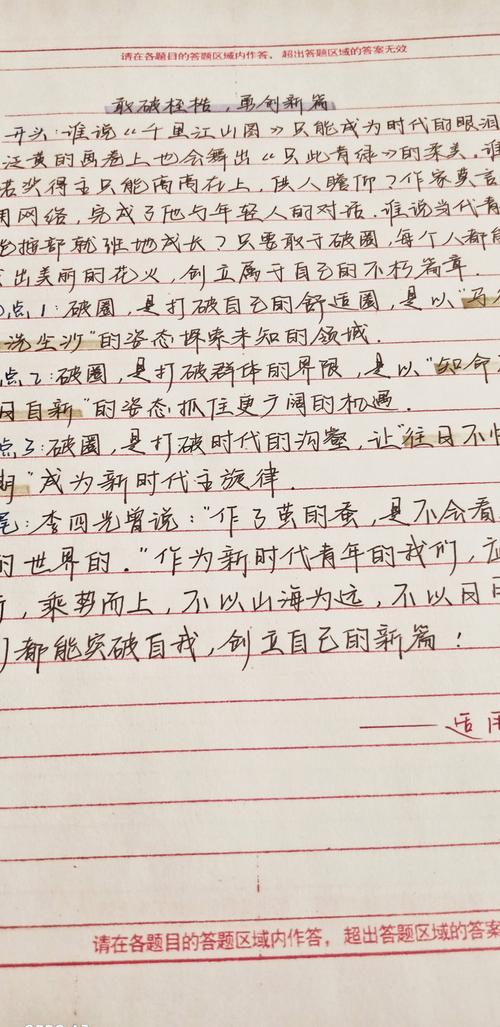 请在各题目的答题区域内作答，超出答题区域的答案无效
敢破桎梏，勇创新篇
开头：谁说《千里江山图》只能成为时代的眼泪
泛黄的画卷上也会舞出《只此青绿》的柔美．谁
奖得主只能高高在上，供人瞻仰？作家莫言
用网络，完成了他与年轻人的对话．谁说当代青
按部就班地成长？只要敢于破圈，每个人都能
出美丽的花火，创立属于自己的不朽篇章．
点1：破圈，是打破自己的舒适圈，是以“马
洗尘沙”的姿态探索未知的领域．
点2：破圈，是打破群体的界限，是以“如命
日自新”的姿态抓住更广阔的机遇．
点3：破圈，是打破时代的沟壑，让“往日不
期”成为新时代主旋律．
尾：李四光曾说：“作了茧的蚕，是不会看
的世界的．”作为新时代青年的我们，应
，乘势而上，不以山海为远，不以日月
们都能突破自我，创立自己的新篇！
——适用
请在各题目的答题区域内作答，超出答题区域的答案